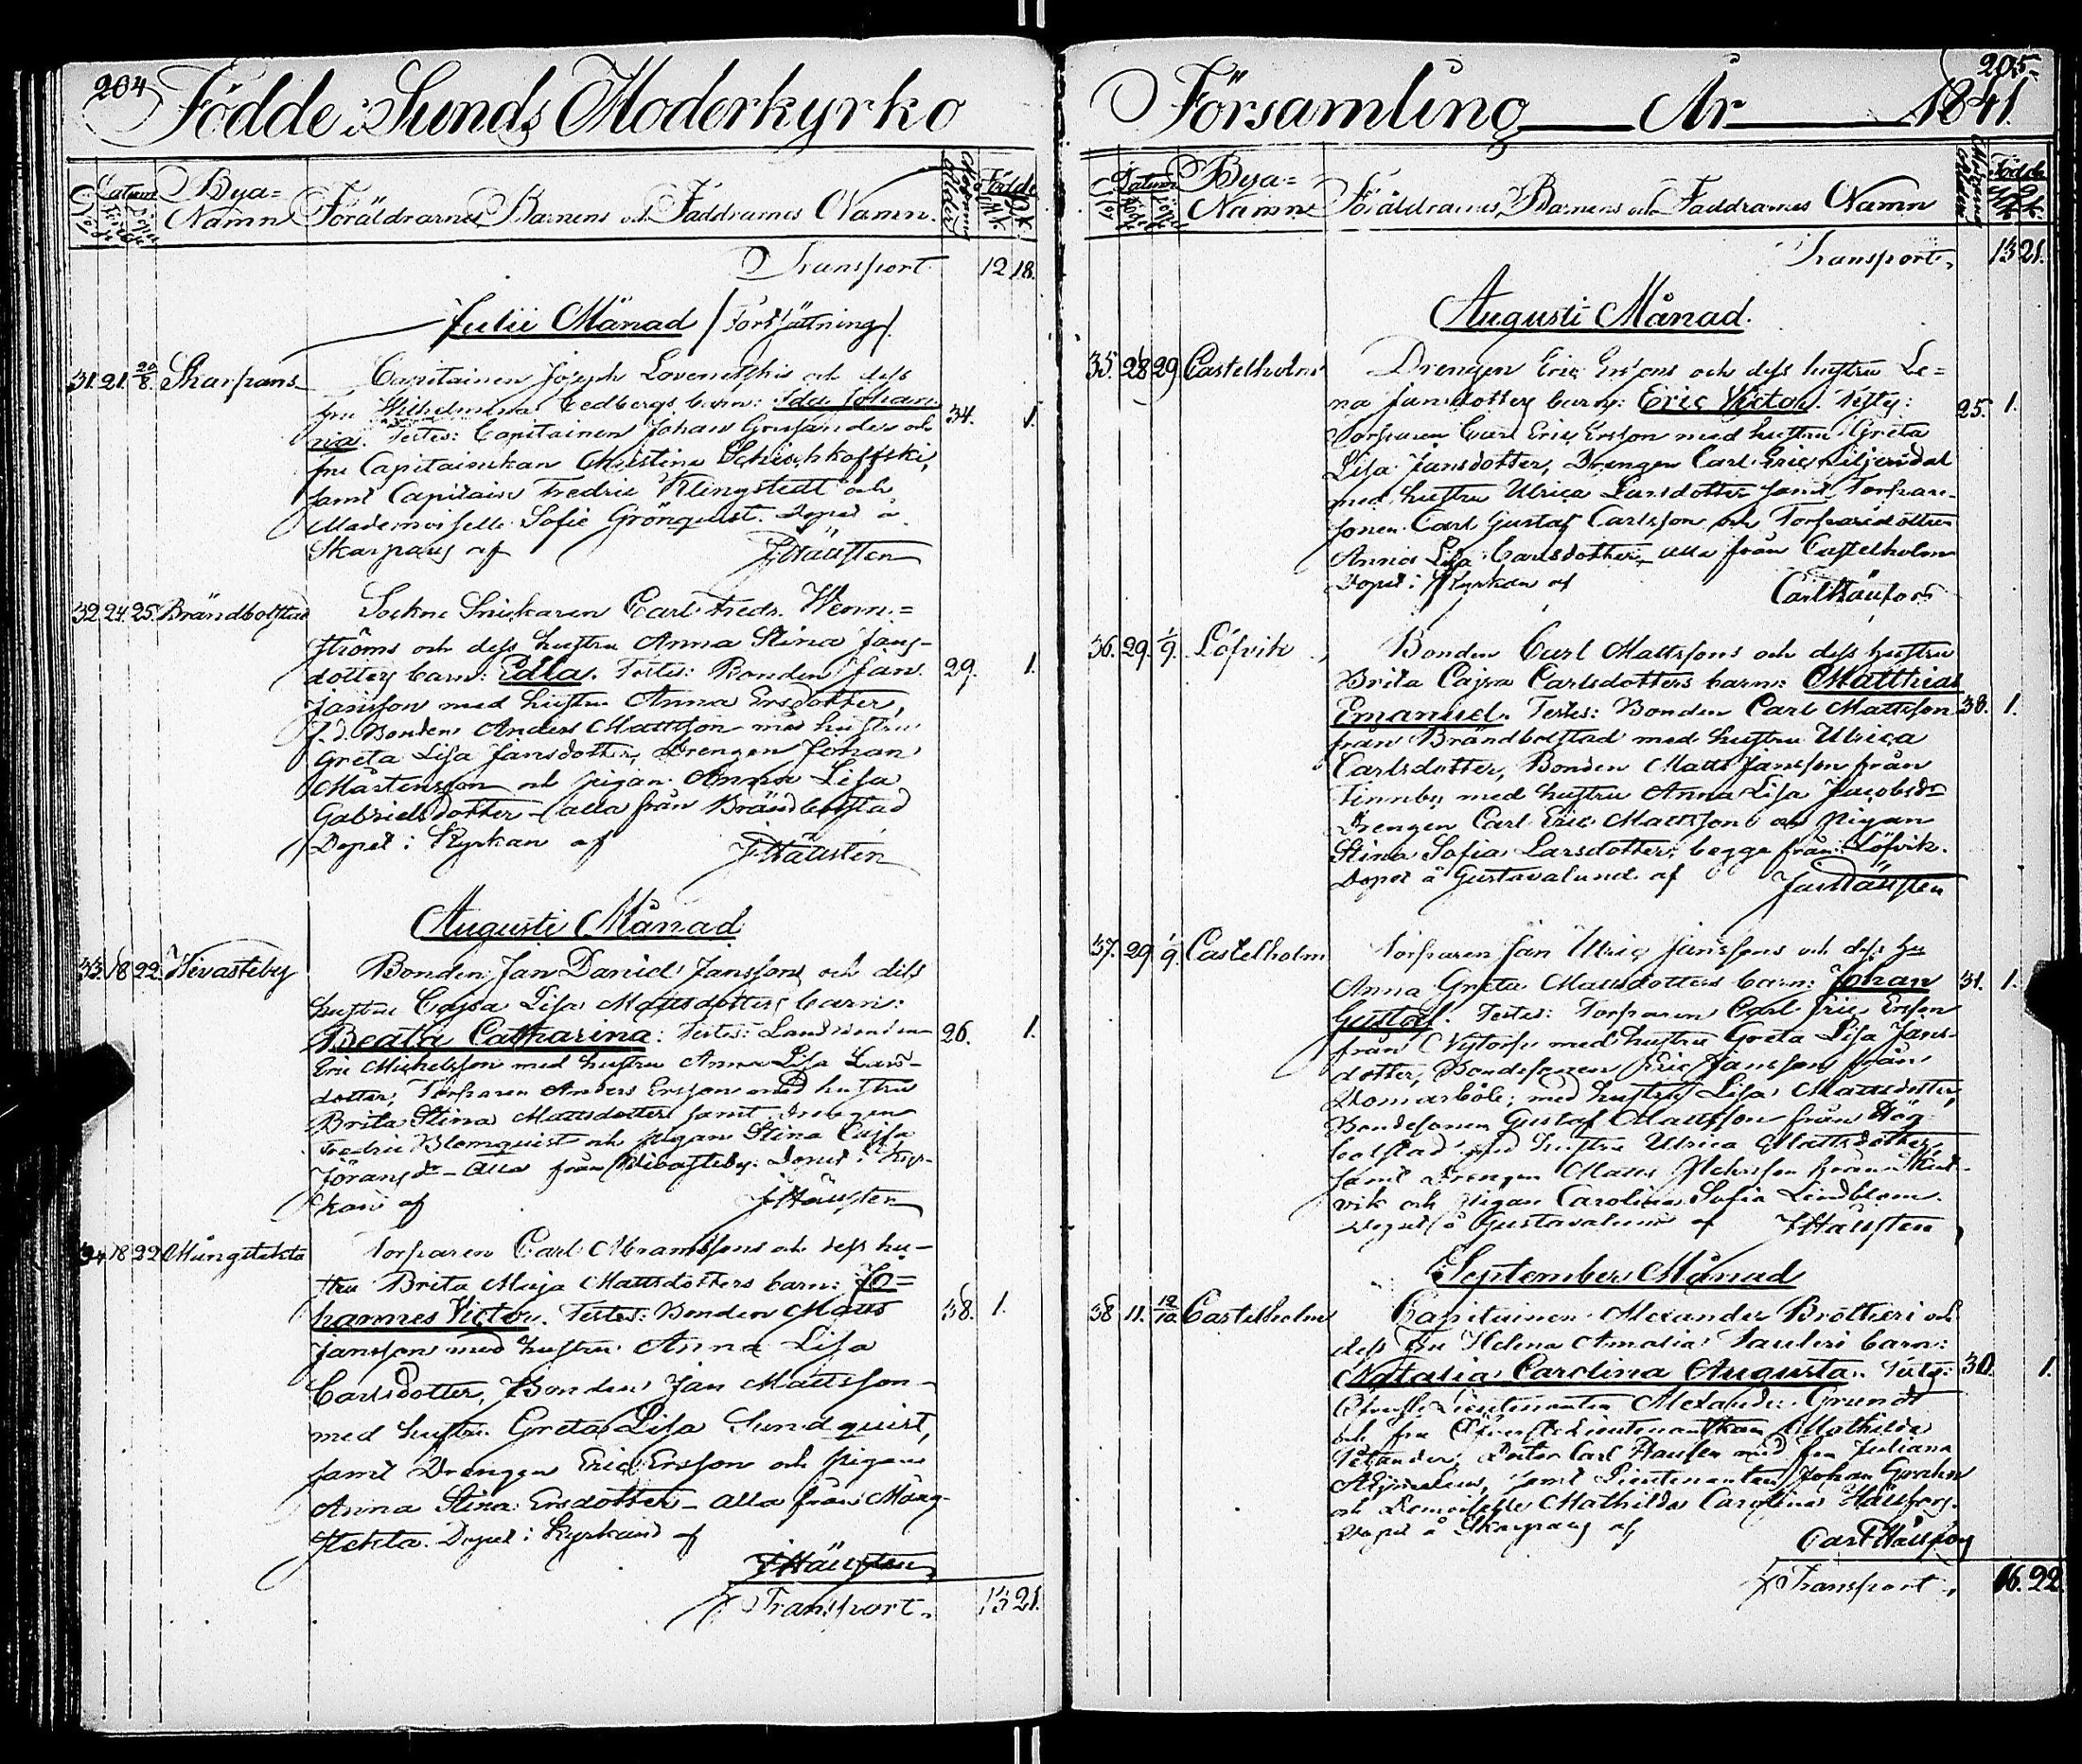 204
Födde i Sunds Moderkyrko
No
Datum
Födde
Döpte
Bya=
Namn
Föräldrarnes, Barnens och Faddrarnes Namn.
Modrens
ålder
Födde
M.k.
Q.k.
Transport 12 18.
Julii Månad /Fortsättning/.
31. 21. 20/8. Skarpans
Capitainen Joseph och dess
fru Wilhelmina Cedbergs barn: Ida Johan= 34. 1.
na. Testes: Capitainen Johan och
fru Capitainskan Christina Schischkoffski,
samt Capitain Fredric Klingstedt och
Mademoiselle Sofie Grönquist. Döpt å
Skarpans af FHäusten
32. 24. 25. Brändbolstad
Sockne Snickaren Carl Fredr. Wenn=
ströms och dess hustru Anna Stina Jans-
dotters barn: Edla. Testes: Bonden Jan 29. 1.
Jansson med hustru Anna Ersdotter,
f.d. Bonden Anders Mattsson med hustru
Greta Lisa Jansdotter, Drengen Johan
Mårtensson och pigan Anna Lisa
Gabrielsdotter - alla från Brändbolstad
Döpt i Kyrkan af FHäusten
Augusti Månad
33. 18. 22. Hivasteby
Bonden Jan Daniel Janssons och dess
hustru Cajsa Lisa Mattsdotters barn:
Beata Catharina: Testes: Landbonden 26. 1.
Eric Michelsson med hustru Anna Lisa Lars-
dotter, Torparen Anders Ersson med hustru
Brita Stina Mattsdotter samt Drengen
Fredric Blomquist och pigan Stina Cajsa
Göransdr - alla från Hivasteby. Döpt i Kyr-
kan af FHäusten
34. 18. 22. Mångstekta
Torparen Carl Abramssons och dess hu-
stru Brita Maja Mattsdotters barn: Jo=
hannes Victor. Testes: Bonden Matts 38. 1.
Jansson med hustru Anna Lisa
Carlsdotter, Bonden Jan Mattsson
med hustru Greta Lisa Sundquist,
samt Drengen Eric Ersson och pigan
Anna Stina Ersdotter - alla från Mång-
stekta. Döpt i Kyrkan af
FHäusten
Transport. 13 21.
205.
Församling År 1841.
No
Datum
Födde
Döpte
Bya=
Namn
Föräldrarnes, Barnens och Faddrarnes Namn
Modrens
ålder
Födde
M.k.
Q.k.
Transport. 13 21.
Augusti Månad.
35. 28 29 Castelholm
Drengen Eric Erssons och dess hustru Le=
na Jansdotters barn: Eric Victor. Testes: 25. 1.
Torparen Carl Eric Ersson med hustru Greta
Lisa Jansdotter, Drengen Carl Eric Liljendal
med hustru Ulrica Larsdotter samt Torpare-
sonen Carl Gustaf Carlsson och Torparedottren
Anna Lisa Carlsdotter, alla från Castelholm
Döpt i Kyrkan af Carl
36. 29. 1/9. Löfvik
Bonden Carl Mattssons och dess hustru
Brita Cajsa Carlsdotters barn: Matthias
Emanuel. Testes: Bonden Carl Mattsson 38. 1.
från Brändbolstad med hustru Ulrica
Carlsdotter, Bonden Matts Jansson från
Finnby med hustru Anna Lisa Jacobsdr
Drengen Carl Eric Mattsson och pigan
Stina Sofia Larsdotter, begge från Löfvik.
Döpt å Gustavalund af Häusten
37. 29 1/9. Castelholm
Torparen Jan Ulric Janssons och dess hu
Anna Greta Mattsdotters barn: Johan 31. 1.
Gustaf. Testes: Torparen Carl Eric Ersson
från Nytorp med hustru Greta Lisa Jans-
dotter, Bondesonen Eric Jansson från
Domarböle, med hustru Lisa Mattsdotter,
Bondesonen Gustaf Mattsson från Hög-
bolstad med hustru Ulrica Mattsdotter
samt Drengen Matts från
vik och pigan Carolina Sofia Lindblom.
Döpt å Gustavalund af FHäusten
September Månad
38 11. 12/10. Castelholm
Capitainen Alexander Brotheri och
dess Fru Helena Amalia barn:
Natalia Carolina Augusta. Testes: 30. 1.
Öfverste Lieutenanten Alexander Grundt
och fru Öfverste Lieutenantskan Mathilda
med fru Juliana
samt Lieutenanten Johan
och Demoiselle Mathilda Carolina
Döpt å Skarpans af
Carl
Transport. 16. 22.